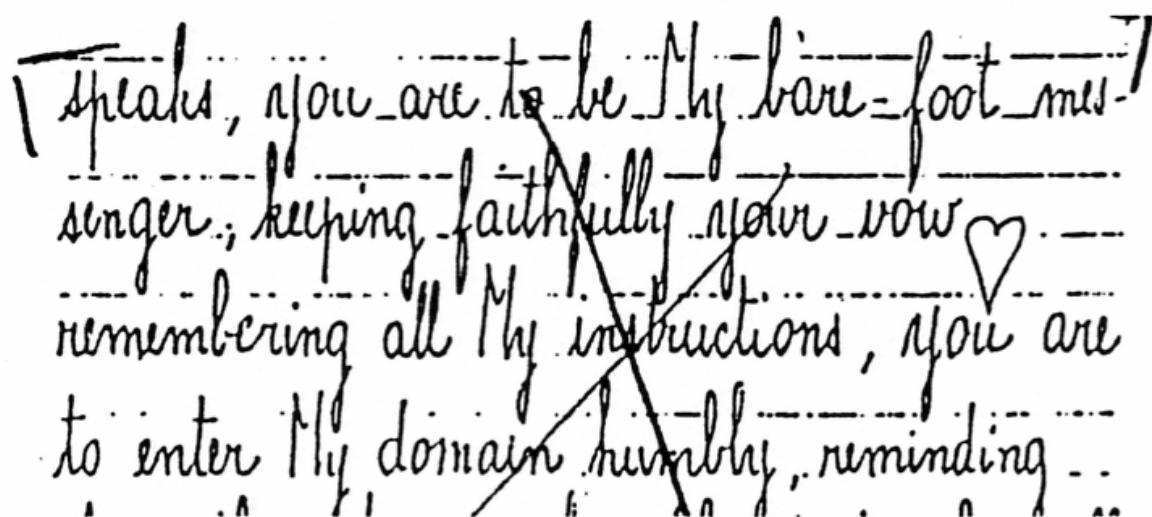 speaks, you are to be My bare-foot mes-
senger; keeping faithfully your vow ♡
remembering all My instructions, you are
to enter My domain humbly, reminding